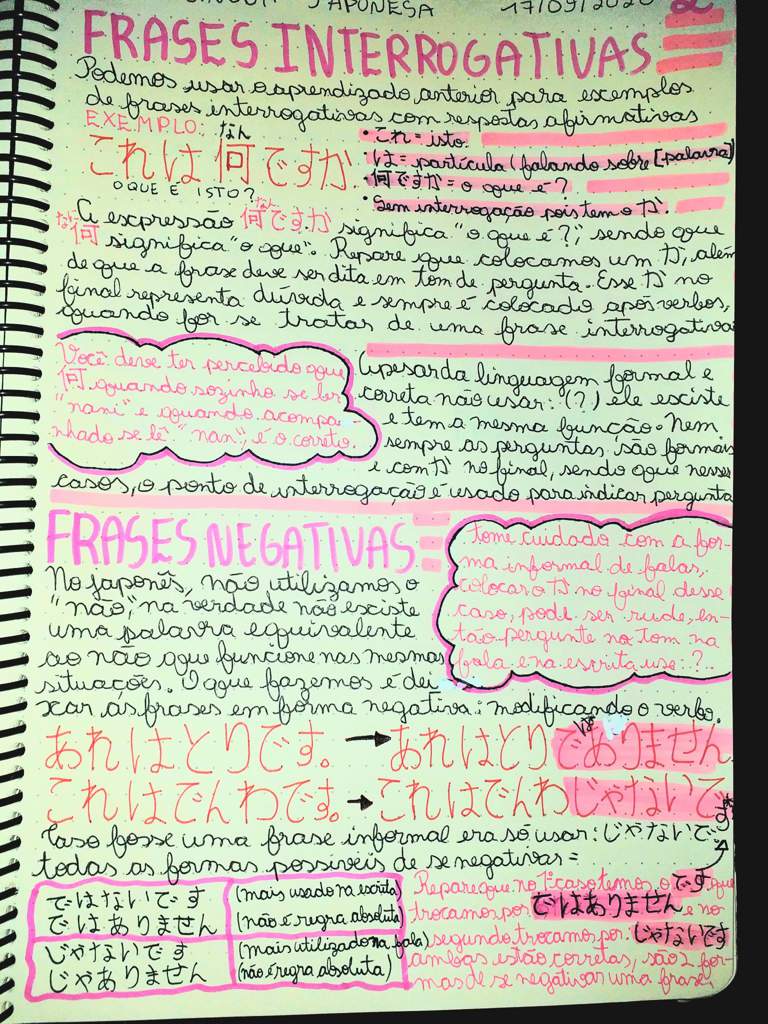 JAPONESA 17/09/2020
FRASES INTERROGATIVAS
Podemos usar o aprendizado anterior para exemplos
de frases interrogativas com respostas afirmativas
EXEMPLO:
なん
これは何ですか.
O QUE É ISTO?
• これ = isto.
• は = partícula (falando sobre [palavra])
• 何ですか = o que é?
• Sem interrogação pois tem o か.
なん
A expressão 何ですか significa "o que é?", sendo que
なに
何 significa "o que". Repare que colocamos um か, além
de que a frase deve ser dita em tom de pergunta. Esse か no
final representa dúvida e sempre é colocado após verbos,
quando for se tratar de uma frase interrogativa
Você deve ter percebido que
何 quando sozinho se lê:
"nani" e quando acompa-
nhado se lê: "nan", é o correto.
Apesar da linguagem formal e
correta não usar: (?) ele existe
e tem a mesma função. Nem
sempre as perguntas são formais
e com か no final, sendo que nesses
casos, o ponto de interrogação é usado para indicar pergunta
FRASES NEGATIVAS
No japonês, não utilizamos o
"não", na verdade não existe
uma palavra equivalente
ao não que funcione nas mesmas
situações. O que fazemos é dei
xar as frases em forma negativa: modificando o verbo.
Tome cuidado com a for-
ma informal de falar,
colocar o か no final desse
caso, pode ser rude, en-
tão pergunte no tom na
fala e na escrita use: ?..
は
あれはとりです。→ あれはとりでありません
これはでんわです。→ これはでんわじゃないで
す
Caso fosse uma frase informal era só usar: じゃないで
todas as formas possíveis de se negativas =
ではないです (mais usado na escrita)
ではありません (não é regra absoluta)
じゃないです (mais utilizado na fala)
じゃありません (não é regra absoluta)
Repare que no 1º caso temos o です que
trocamos por ではありません e no
segundo trocamos por じゃないです
ambas estão corretas, são 2 for-
mas de se negativar uma frase.